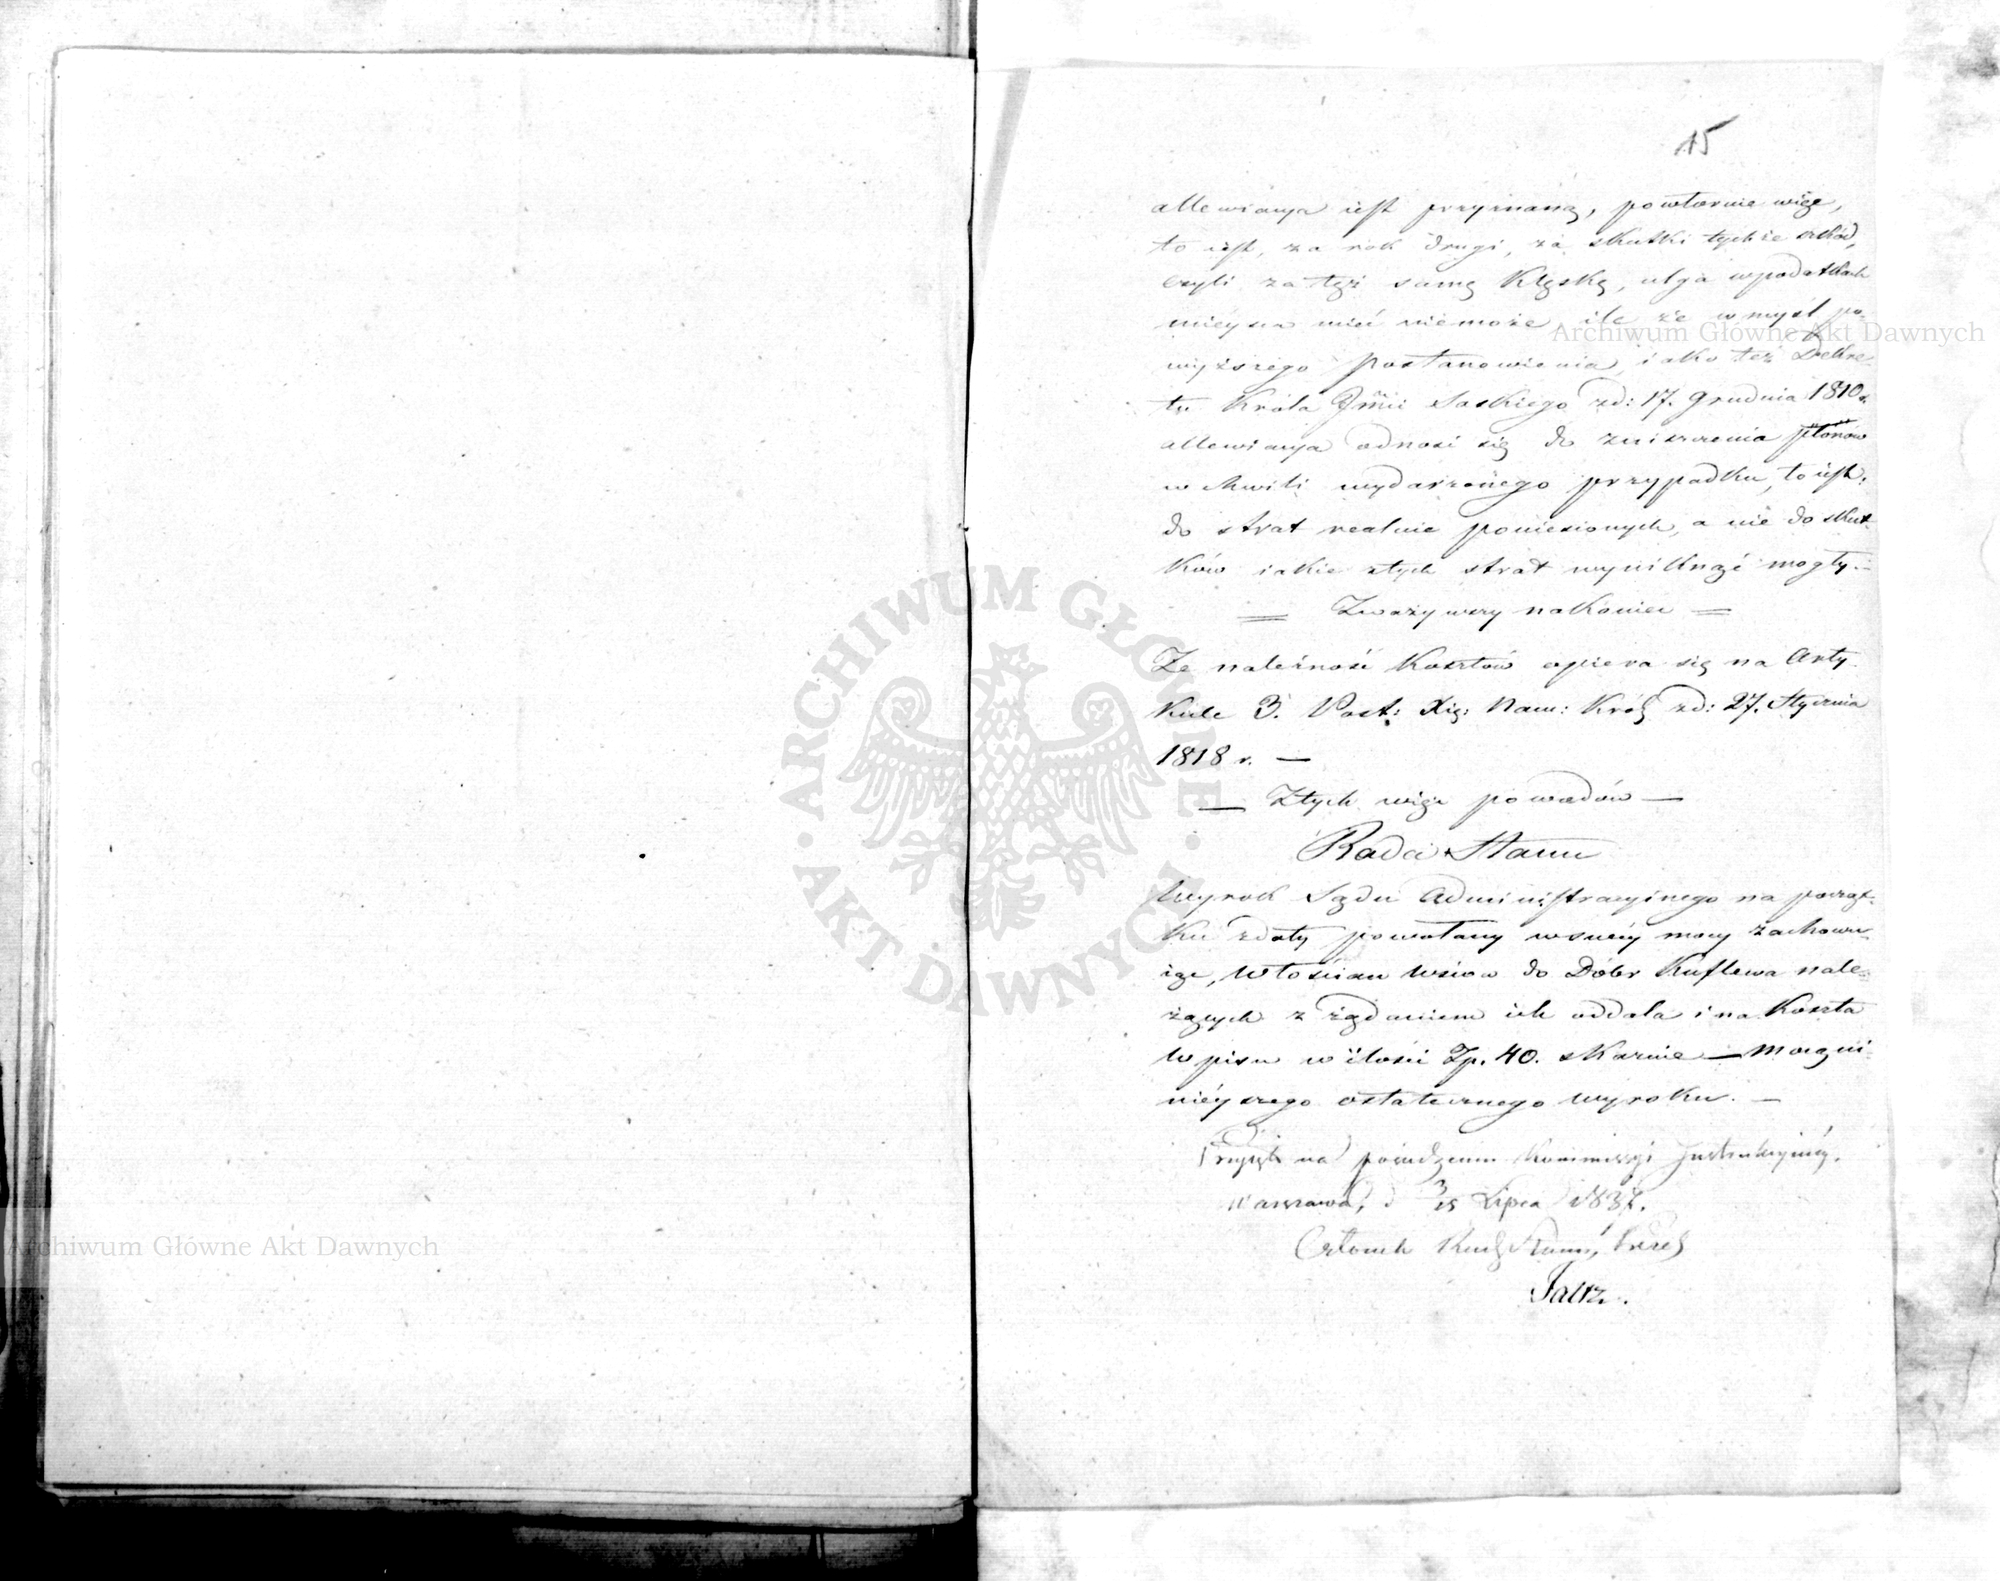 15
allewiacya iest przyznaną, powtórnie więc,
to iest, za rok drugi, za skutki tychże szkód,
czyli za tęż samą klęskę, ulga w podatkach
mieysca mieć niemoże, ile że w myśl po-
wyższego Postanowienia, iako też Dekre-
tu Króla Jmci Saskiego z d: 17. Grudnia 1810 r.
allewiacya odnosi się do zniszczenia plonów
w chwili wydarzonego przypadku, to iest,
do strat realnie poniesionych, a nie do skut-
ków iakie z tych strat wyniknąć mogły.—
Zważywszy nakoniec
Że należność kosztów opiera się na Arty-
kule 3. Post: Xię: Nam: Król: z d: 27. Stycznia
1818 r. —
— Z tych więc powodów —
Rada Stanu
Wyrok Sądu Administracyinego na począt-
ku z daty powołany w swéy mocy zachowu-
iąc, Włościan wsiów do Dóbr Kuflewa nale-
żących z żądaniem ich oddala i na koszta
wpisu w ilości Zp. 40. skazuie — mocą ni-
nieyszego ostatecznego wyroku. —
Przyięto na posiedzeniu Kommissyi Instrukcyinéy.
Warszawa, d 3/15 Lipca 1837.
Członek Rady Stanu, Prezes
Archiwum Główne Akt Dawnych
Archiwum Główne Akt Dawnych
ARCHIWUM GŁÓWNE · AKT DAWNYCH ·